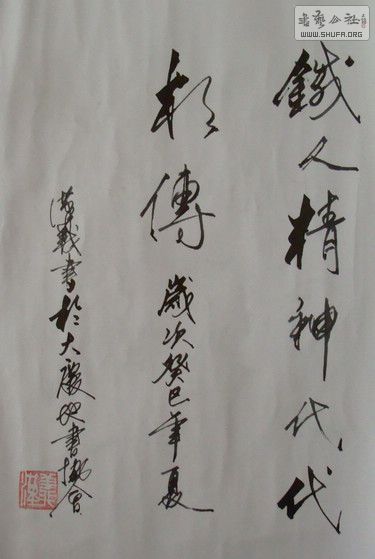 鐵人精神代代
相傳 歲次癸巳年夏
戰書於大慶地書協會
書藝公社
WWW.SHUFA.ORG